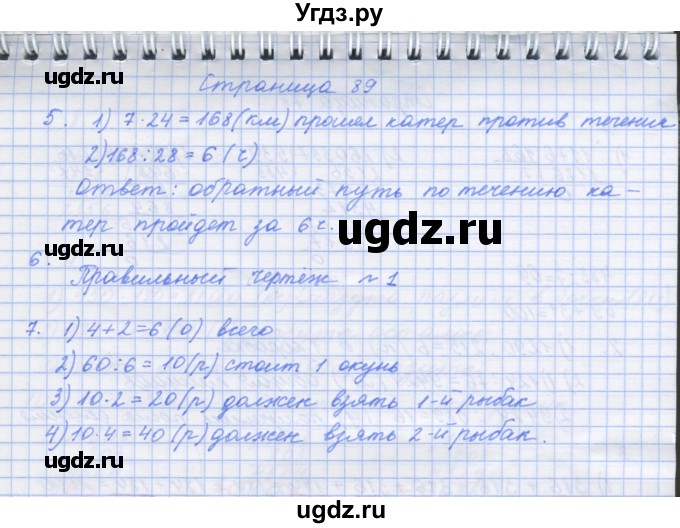 Угдз.ру
Страница 89
ugdz.ru ugdz.ru
5. 1) 7·24=168(км) прошел катер против течения
2) 168:28=6 (ч)
Ответ: обратный путь по течению ка-
тер пройдет за 6 ч.
ugdz.ru
6. Правильный чертёж №1
7. 1) 4+2=6 (о) всего
2) 60:6=10(р) стоит 1 окунь
3) 10·2=20(р) должен взять 1-й рыбак
4) 10·4=40 (р) должен взять 2-й рыбак.
ugdz.ru ugdz.ru
ugdz.ru